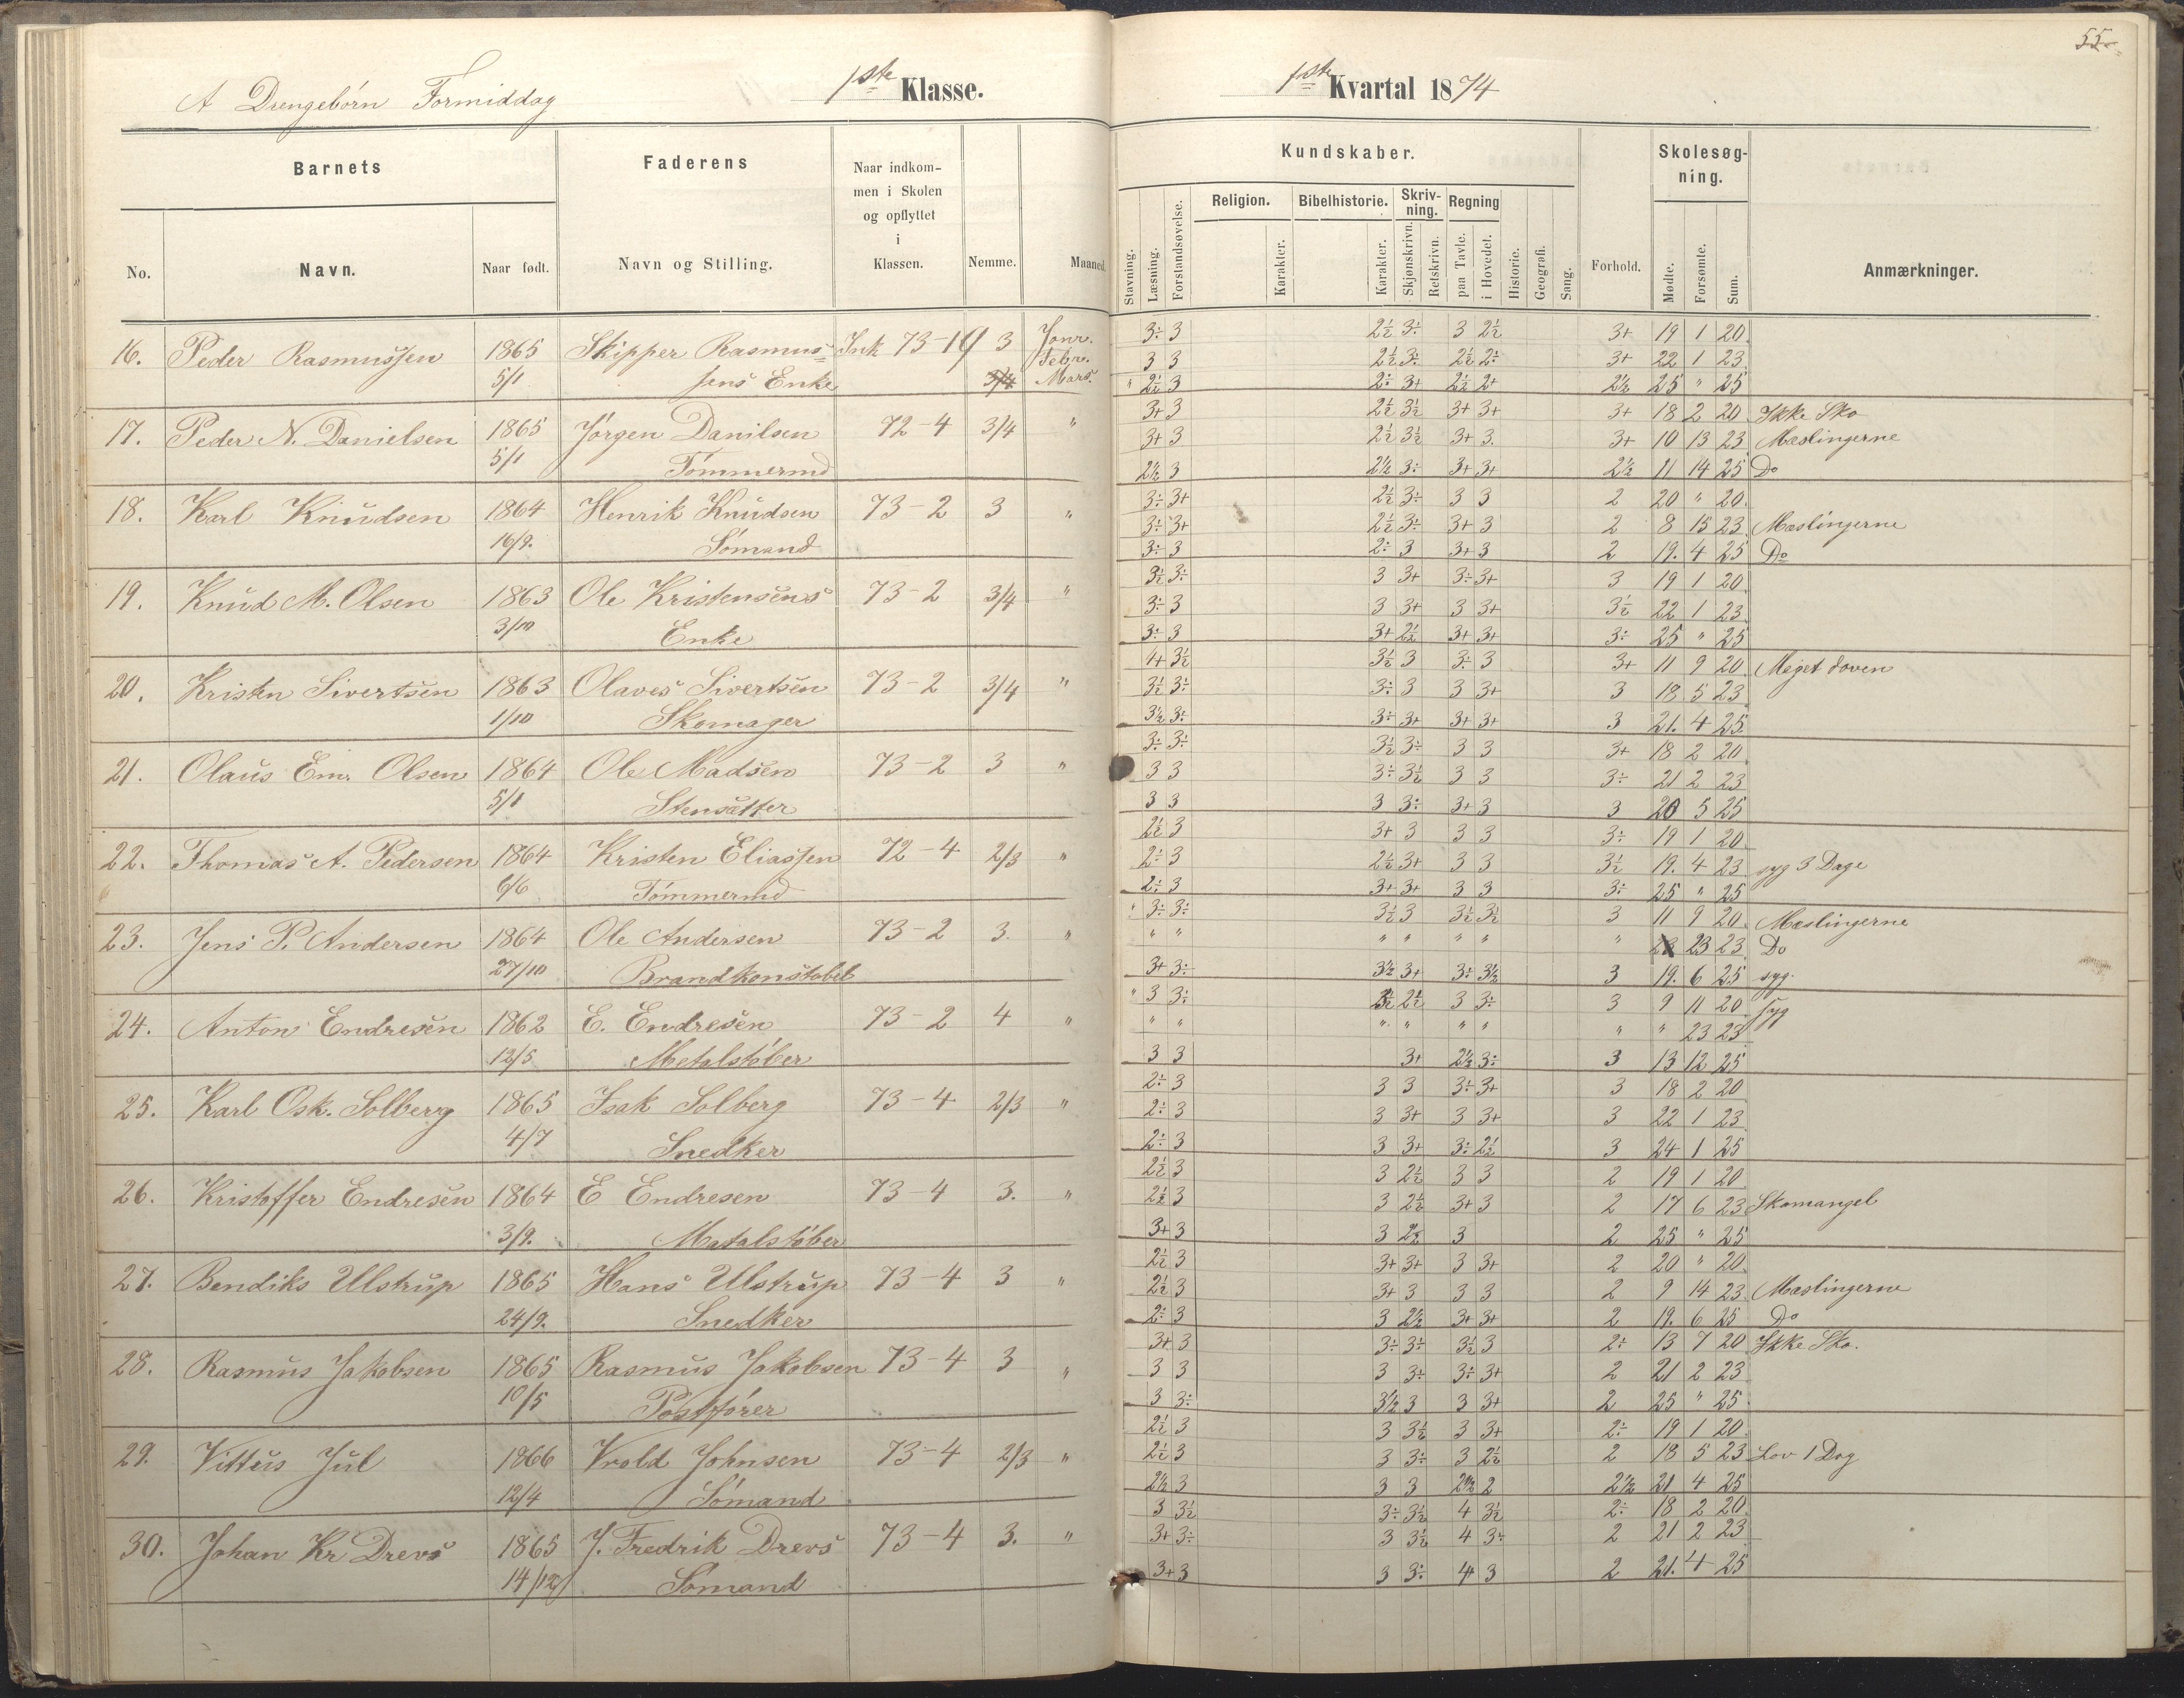 55
A Drengebörn Formiddag 1ste Klasse. 1ste Kvartal 1874
Barnets Faderens Naar indkommen i Skolen og opflyttet i Klassen. Nemme. Maaned Kundskaber. Forhold. Skolesøgning. Anmærkninger.
No. Navn. Naar født. Navn og Stilling.
Stavning. Læsning. Forstandsøvelse. Religion. Karakter. Bibelhistorie. Karakter. Skrivning. Skjønskrivn. Retskrivn. Regning paa Tavle. i Hovedet. Historie. Geografi. Sang. Mødte. Forsømte. Sum.
16. Peder Rasmussen 1865 Skipper Rasmus= Ink 73-10 3 Janr. 3÷ 3 2½ 3÷ 3 2½ 3+ 19 1 20
Febr. 3 3 2½ 3÷ 2½ 2÷ 3+ 22 1 23
5/1 sens Enke 3/4 Mars. " 2½ 3 2÷ 3+ 2½ 2+ 2½ 25 " 25
17. Peder N. Danielsen 1865 Jörgen Danilsen 72-4 3/4 " 3+ 3 2½ 3½ 3+ 3+ 3+ 18 2 20 Ikke Sko
3+ 3 2½ 3½ 3+ 3 3+ 10 13 23 Mæslingerne
5/1 Tömmermd 2½ 3 2½ 3÷ 3+ 3+ 2½ 11 14 25 Do
18. Karl Knudsen 1864 Henrik Knudsen 73-2 3 " 3÷ 3+ 2½ 3÷ 3 3 2 20 " 20
3÷ 3+ 2½ 3÷ 3+ 3 2 8 15 23 Mæslingerne
16/9. Sömand 3÷ 3 2÷ 3 3+ 3 2 19. 4 25 Do
19. Knud M. Olsen 1863 Ole Kristensens 73-2 3/4 " 3½ 3÷ 3 3+ 3÷ 3+ 3 19 1 20
3÷ 3 3 3+ 3 3+ 3½ 22 1 23
3/10 Enke 3÷ 3 3+ 2½ 3+ 3+ 3÷ 25 " 25
20. Kristen Sivertsen 1863 Olaves Sivertsen 73-2 3/4 " 4+ 3½ 3½ 3 3÷ 3 3+ 11 9 20 Meget doven
3½ 3÷ 3÷ 3 3 3+ 3 18 5 23
1/10 Skomager 3½ 3÷ 3÷ 3+ 3+ 3+ 3 21. 4 25
21. Olaus Em. Olsen 1864 Ole Madsen 73-2 3 " 3÷ 3÷ 3½ 3÷ 3 3 3+ 18 2 20
3 3 3÷ 3½ 3 3 3÷ 21 2 23
5/1 Stensætter 3 3 3 3÷ 3+ 3 3 20 5 25
22. Thomas A. Pedersen 1864 Kristen Eliassen 72-4 2/3 " 2½ 3 3+ 3 3 3 3÷ 19 1 20
2÷ 3 2½ 3+ 3 3 3½ 19. 4 23 syg 3 Dage
6/6 Tömmermd 2÷ 3 3+ 3+ 3 3 3÷ 25 " 25
23. Jens P. Andersen 1864 Ole Andersen 73-2 3. " 3÷ 3÷ 3½ 3 3½ 3½ 3 11 9 20 Mæslingerne
" " " " " " " 23 23 Do
27/10 Brandkonstabel 3+ 3÷ 3½ 3+ 3÷ 3½ 3 19. 6 25 syg.
24. Anton Endresen 1862 E. Endresen 73-2 4 " " 3 3÷ 2½ 3 3÷ 3 9 11 20 syg
" " " " " " " " 23 23
12/5 Metalstöber 3 3 3+ 2½ 3÷ 3 13 12 25
25. Karl Osk. Solberg 1865 Isak Solberg 73-4 2/3 " 2÷ 3 3 3 3÷ 3+ 3 18 2 20
2÷ 3 3 3+ 3 3+ 3 22 1 23
4/7 Snedker 2÷ 3 3 3+ 3÷ 2½ 3 24 1 25
26. Kristoffer Endresen 1864 E Endresen 73-4 3. " 2½ 3 3 2½ 3 3 2 19 1 20
2½ 3 3 2½ 3+ 3 2 17 6 23 Skomangel
3/9. Matalstöber 3+ 3 3 2½ 3 2 25 " 25
27. Bendiks Ulstrup 1865 Hans Ulstrup 73-4 3 " 2½ 3 3+ 3+ 3 3+ 2 20 " 20
2½ 3 3+ 3 3 3 2 9 14 23 Mæslingerne
24/9. Snedker 2÷ 3 3 2½ 3+ 3+ 2 19. 6 25 Do
28. Rasmus Jakobsen 1865 Rasmus Jakobsen 73-4 3 " 3+ 3 3÷ 3÷ 3½ 3 2÷ 13 7 20 Ikke Sko.
3 3 3 3÷ 3÷ 3+ 2 21 2 23
10/5 Postförer 3 3÷ 3½ 3 3 3+ 2 25 " 25
29. Vittus Jul 1866 Vrold Johnsen 73-4 2/3 " 2½ 3 3 3½ 3 3+ 2÷ 19 1 20
2½ 3 3 3÷ 3 2½ 2 18 5 23 Lov 1 Dag
12/4 Sömand 2½ 3 3 3 2½ 2 2½ 21 4 25
30. Johan Kr Drevs 1865 J. Fredrik Drevs 73-4 3. " 3 3½ 3÷ 3½ 4 3½ 2÷ 18 2 20
3+ 3÷ 3 3½ 4 3÷ 2 21 2 23
14/12 Sömand 3+ 3 3 3÷ 4 3 2 21. 4 25